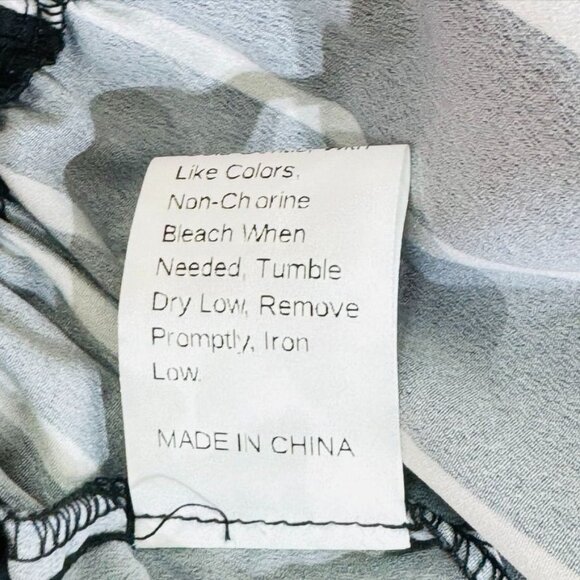 With
Like Colors,
Non-Chorine
Bleach When
Needed, Tumble
Dry Low, Remove
Promptly, Iron
Low.
MADE IN CHINA